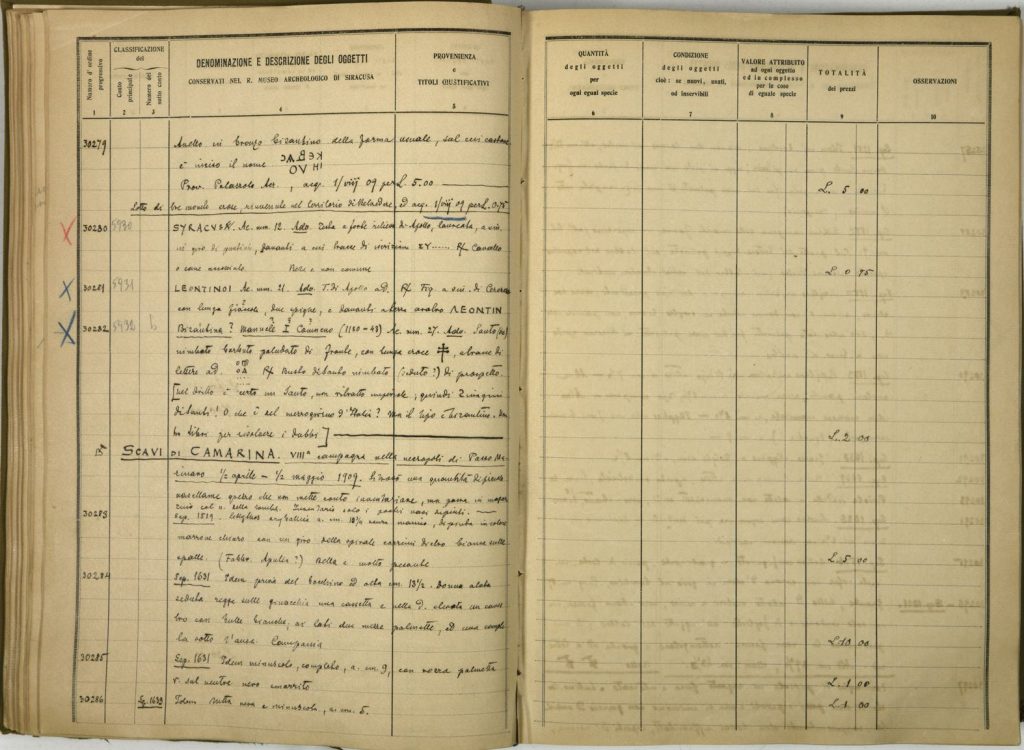 Numero d'ordine progressivo
CLASSIFICAZIONE del
Conto principale
Numero del sotto conto
DENOMINAZIONE E DESCRIZIONE DEGLI OGGETTI
CONSERVATI NEL R. MUSEO ARCHEOLOGICO DI SIRACUSA
PROVENIENZA
e
TITOLI GIUSTIFICATIVI
1 2 3 4 5
30279 Anello in bronzo bizantino della forma usuale, sul cui castone
è inciso il nome
Prov. Palazzolo Acr., acq. 1/viij 09 per L. 5.00
Lotto di tre monete erose, rinvenute nel territorio di acq. 1/viij 09 per L. 0.75
30280 5930 SYRACUSA. Ae. mm. 12. Ado. Testa a forte rilievo di Apollo, laureata, a sin.
in giro di puntini, davanti a cui tracce di iscrizione ΣΥ...... R/ Cavallo
o cane Rara e non comune
30281 5931 LEONTINOI Ae. mm. 21. Ado. T. di Apollo a d. R/ Fig. a sin. di
con lunga due spighe, e davanti aratro ΛEONTIN
30282 5932 b Bizantina? Manuele I Comneno (1180-43) Ae. mm. 27. Ado. Santo
nimbato barbuto paludato di fronte, con lunga croce
lettere a d. R/ Busto di Santo nimbato (seduto?) di prospetto.
[nel diritto è certo un Santo, non ritratto imperiale; quindi 2 imagini
di Santi! O che è del mezzogiorno d'Italia? Ma il tipo è bizantino.
libri per risolvere i dubbi]
15 SCAVI DI CAMARINA. VIIIª campagna nella necropoli di Passo Ma-
rinaro ½ aprile – ½ maggio 1909. una quantità di
vasellame grezzo che non mette conto inventariare, ma passa in magaz-
zino col n. della tomba. Inventario solo i pochi vasi dipinti.
30283 Sep. 1519. Lekythos senza manico, dipinta in colore
marrone chiaro con un giro della spirale
spalle. (Fabbr. Apulia?) Bella e molto pesante
30284 Sep. 1631 Idem priva del bocchino alta cm. 13½. Donna alata
seduta regge sulle ginocchia una cassetta e nella d. elevata un
con bianche, ai lati due mezze palmette, ed una
sotto l'ansa. Campania
30285 Sep. 1631 Idem minuscolo, completo, a. cm. 9, con rozza palmetta
r. sul ventre nero smarrito
30286 Sp. 1639 Idem tutta nera e minuscola, a. cm. 5.
QUANTITÀ
degli oggetti
per
ogni egual specie
CONDIZIONE
degli oggetti
cioè: se nuovi, usati,
od inservibili
VALORE ATTRIBUITO
ad ogni oggetto
ed in complesso
per le cose
di eguale specie
TOTALITÀ
dei prezzi
OSSERVAZIONI
6 7 8 9 10
L. 5 00
L. 0 75
L. 2 00
L. 5 00
L. 10 00
L. 1 00
L. 1 00